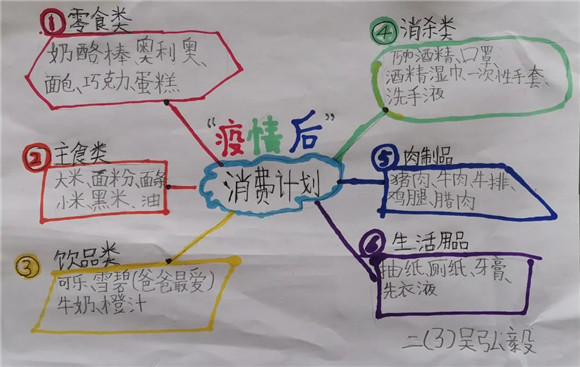 ① 零食类
奶酪棒、奥利奥、
面包、巧克力、蛋糕
② 主食类
大米、面粉、面条
小米、黑米、油
③ 饮品类
可乐、雪碧(爸爸最爱)
牛奶、橙汁
"疫情后"
消费计划
④ 消杀类
75%酒精、口罩、
酒精湿巾、一次性手套、
洗手液
⑤ 肉制品
猪肉、牛肉、牛排、
鸡腿、腊肉
⑥ 生活用品
抽纸、厕纸、牙膏、
洗衣液
二(3)吴弘毅